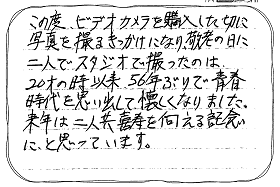 この度、ビデオカメラを購入した切に
写真を撮るきっかけになり、敬老の日に
二人でスタジオで撮ったのは、
20才の時以来、56年ぶりで青春
時代を思い出して懐しくなりました。
来年は二人共喜寿を向える記念
に、と思っています。